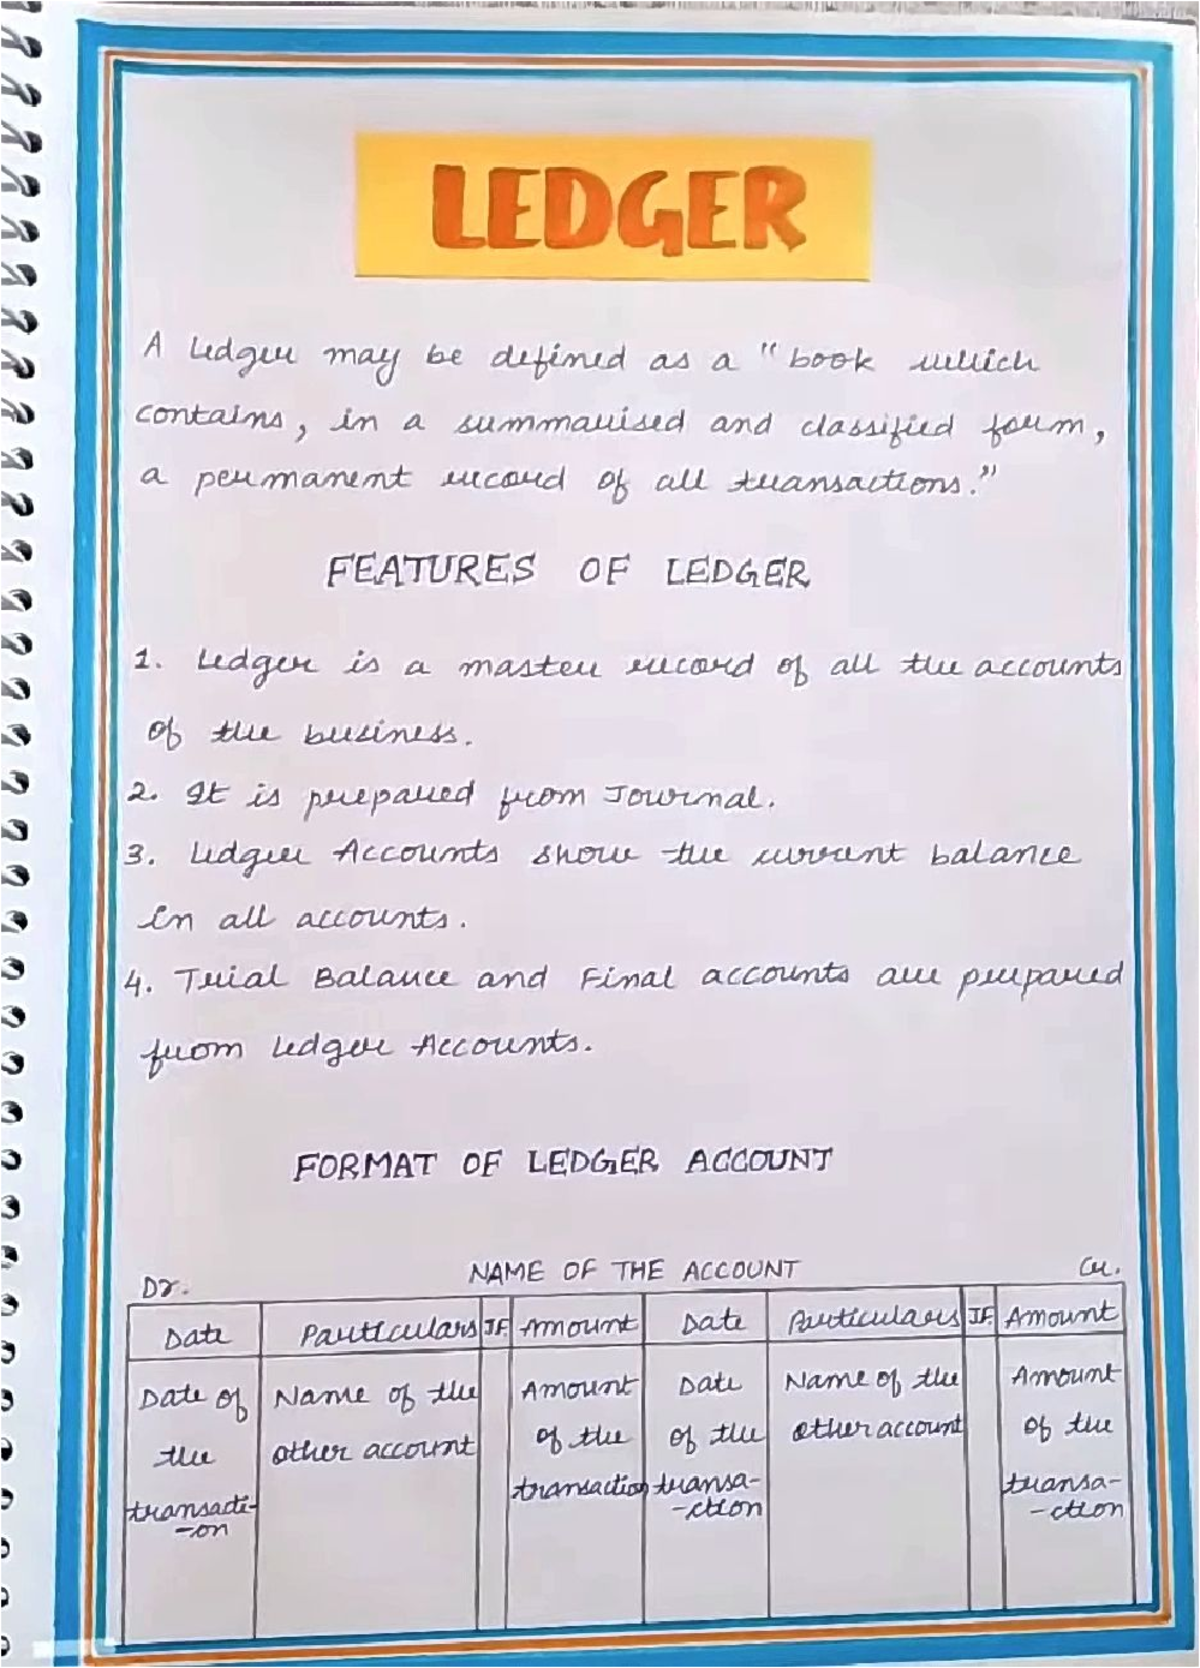 LEDGER
A Ledger may be defined as a "book which
contains, in a summarised and classified form,
a permanent record of all transactions."
FEATURES OF LEDGER
1. Ledger is a master record of all the accounts
of the business.
2. It is prepared from Journal.
3. Ledger Accounts show the current balance
in all accounts.
4. Trial Balance and Final accounts are prepared
from Ledger Accounts.
FORMAT OF LEDGER ACCOUNT
Dr. NAME OF THE ACCOUNT Cr.
Date Particulars J.F. Amount Date Particulars J.F. Amount
Date of Name of the Amount Date Name of the Amount
the other account of the of the other account of the
transacti- transaction transa- transa-
-on -ction -ction